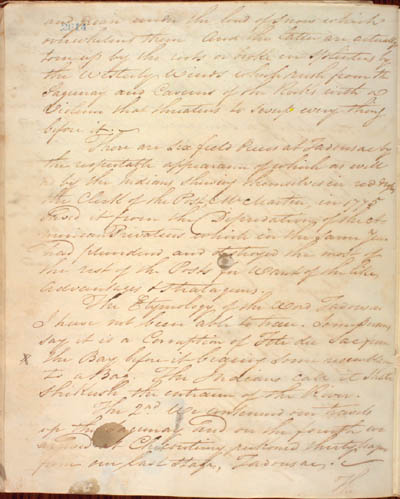 and groan under the load of Snow which
overwhelms them And the latter are actually
torn up by the roots or broke in Splinters by
the Westerly Winds which rush from the
Saguenay and Caverns of the Rocks with a
Violence that threatens to sweep every thing
before it.
There are Six field Pieces at Tadousac by
the respectable appearance of which as well
as by the Indians shewing themselves in red
the Clerk of the Post, Mr Martin, in 1775
saved it from the Depredations of the A
merican Privateers which in the same Year
had plundered and destroyed the most of
the rest of the Posts for Want of the like
Advantages & Stratagems.
The Etymology of the Word Tadousac
I have not been able to trace. Some
say it is a Corruption of
the Bay before it bearing some resemblance
to a Bag The Indians call it
the entrance of the River.
The 2nd We continued our travels
up the Saguenay and on the fourth we
arrived at Chicoutimy reckoned thirty
from our last Stage, Tadousac.